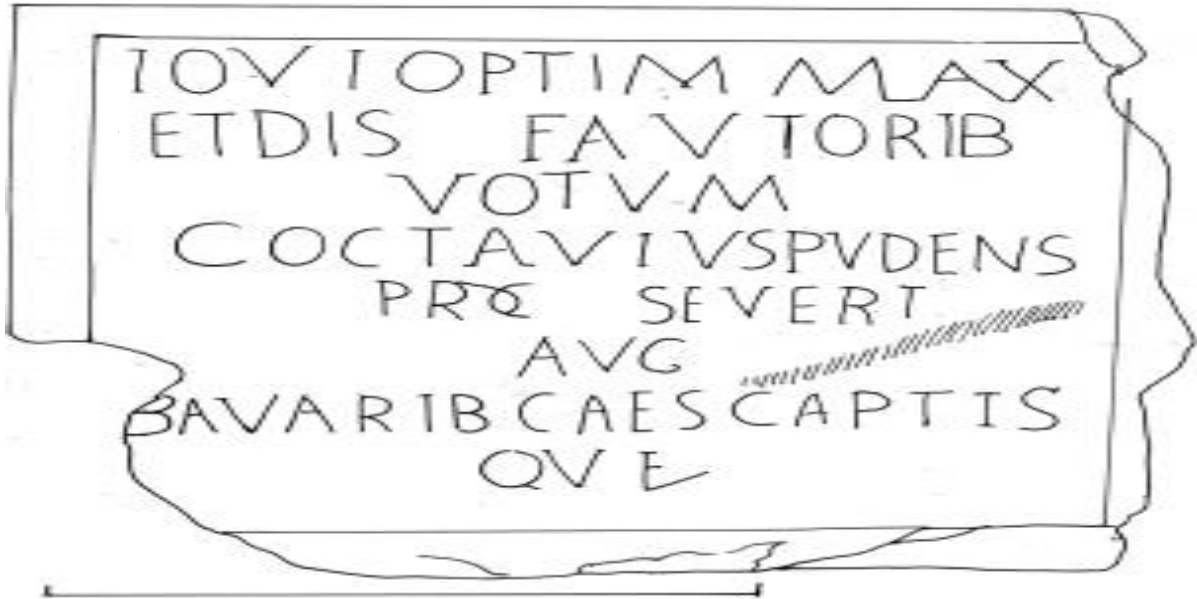 IOVI OPTIM MAX
ET DIS FAVTORIB
VOTVM
C OCTAVIVS PVDENS
PROC SEVERI
AVG
BAVARIB CAES CAPTIS
QVE